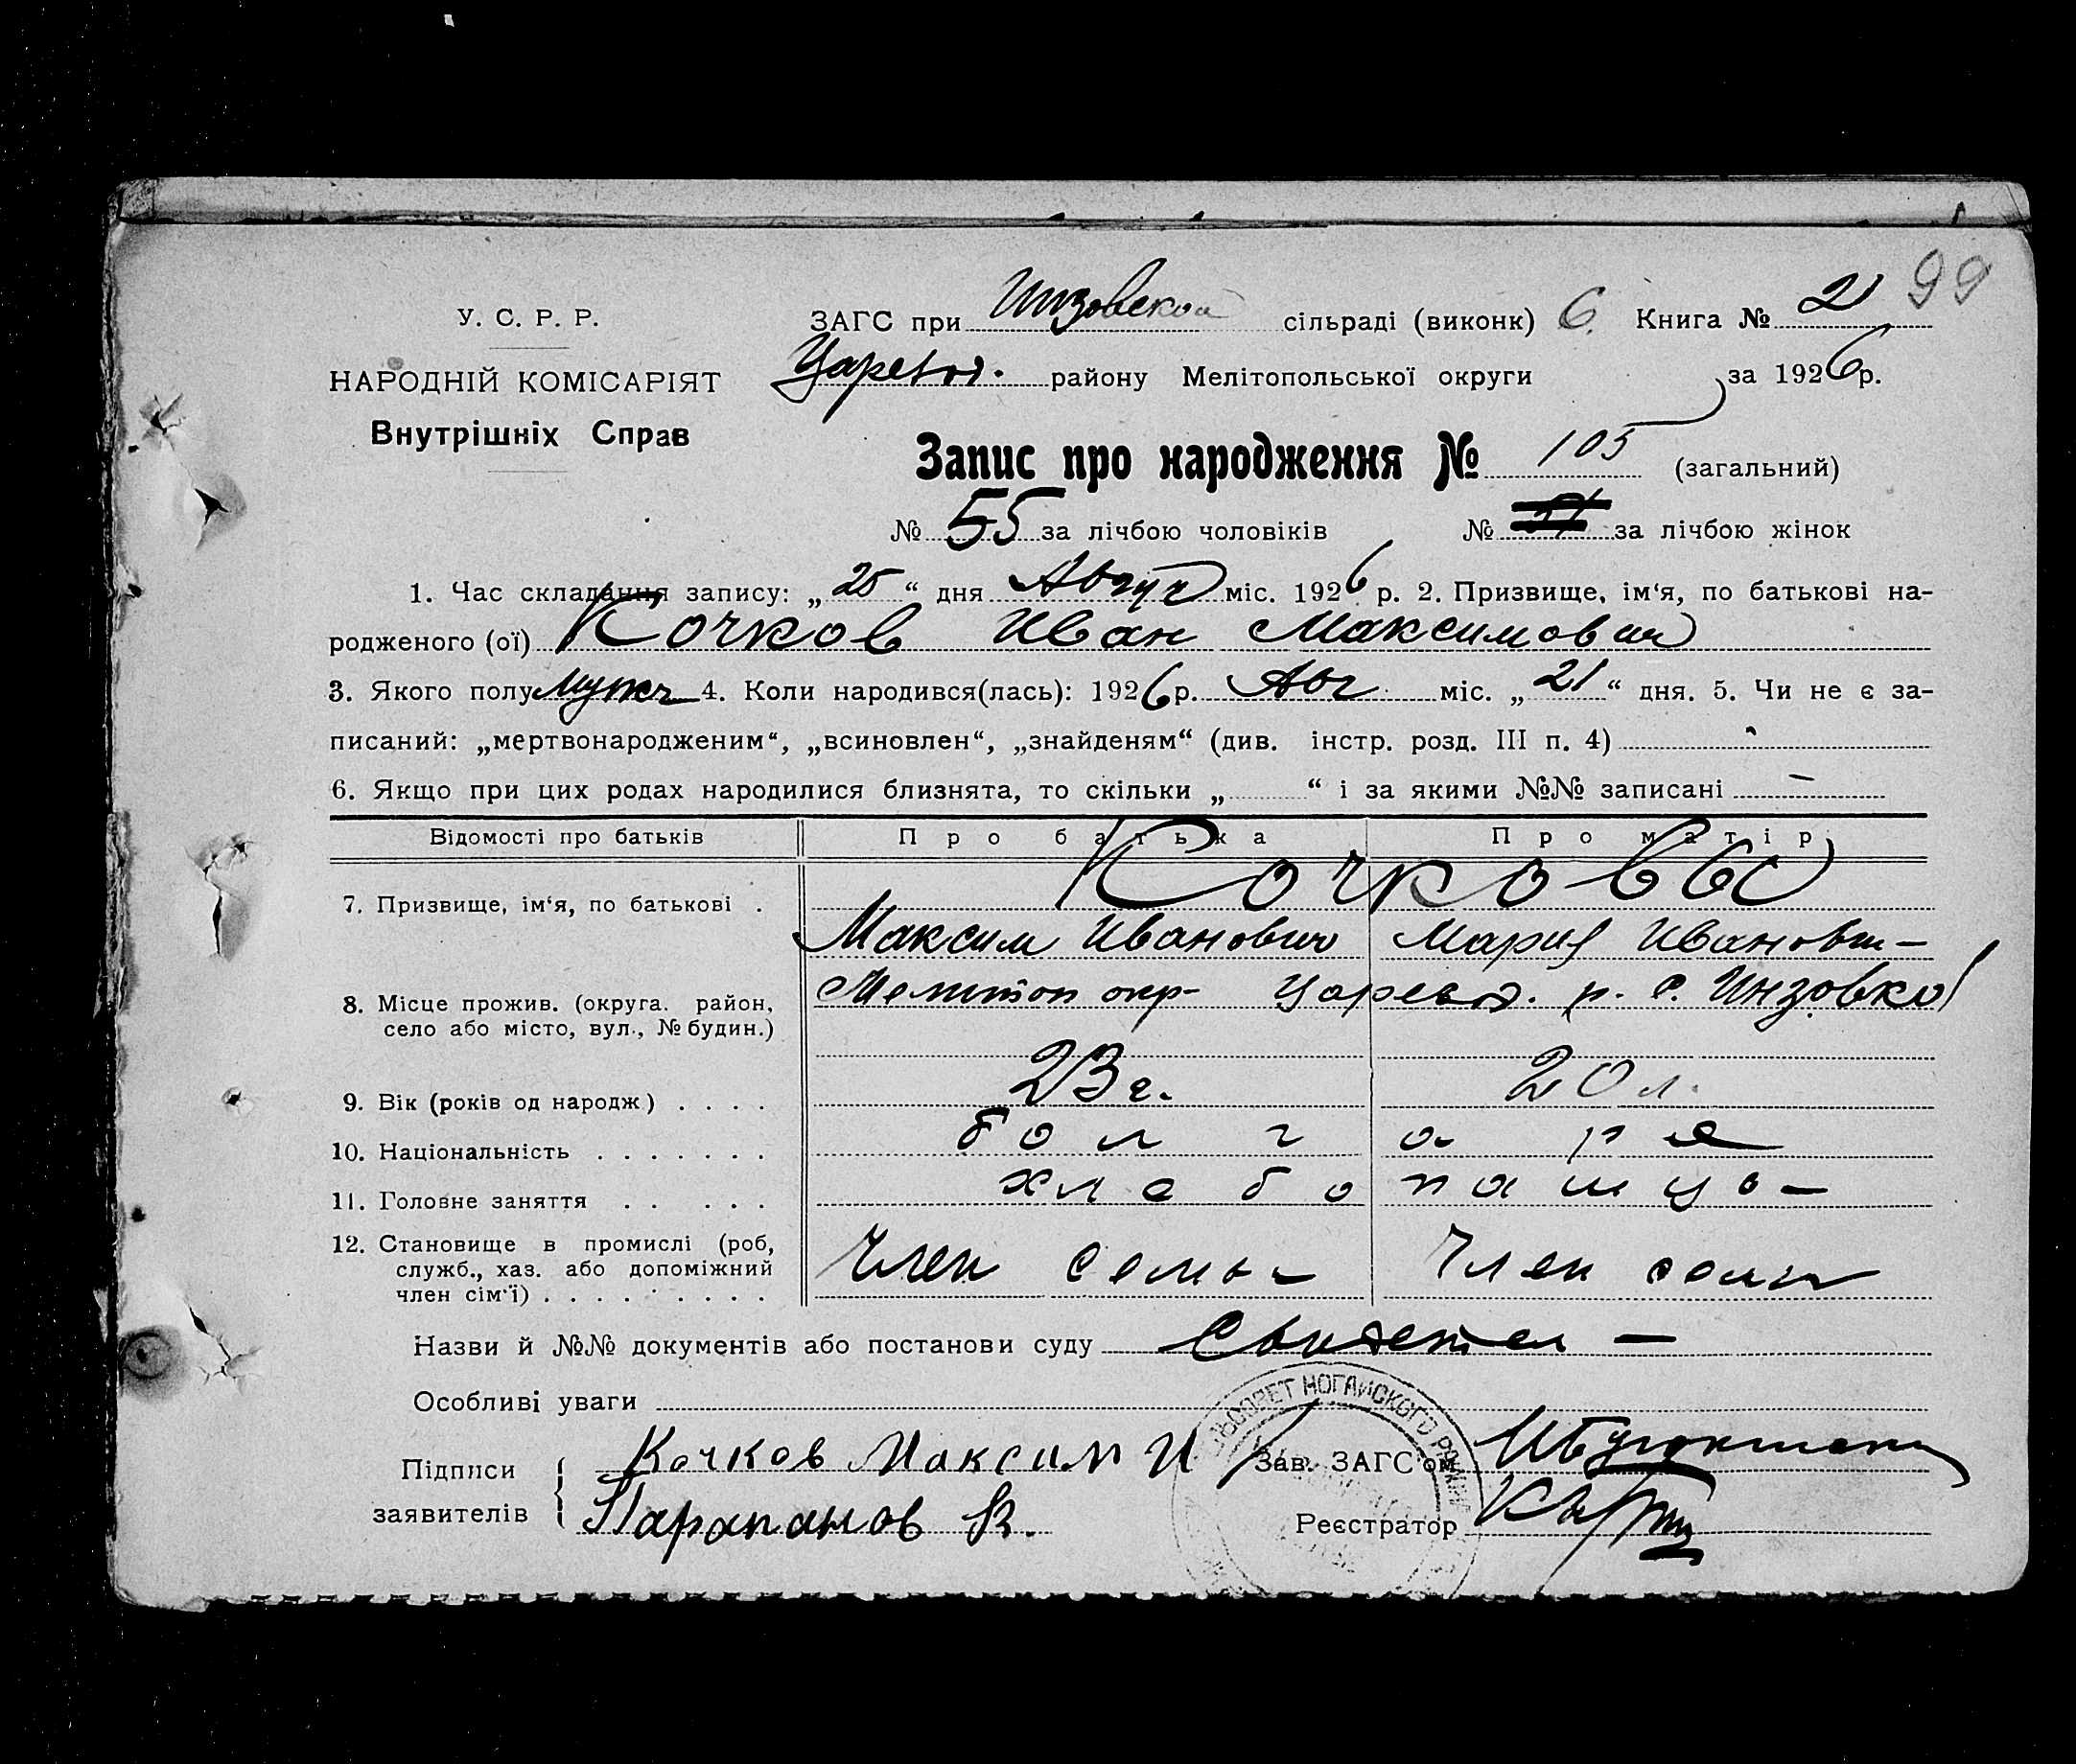 99
У. С. Р. Р.
НАРОДНІЙ КОМІСАРІЯТ
Внутрішніх Справ
ЗАГС при Инзовской сільраді (виконк) 6. Книга № 2
Царевод. району Мелітопольської округи за 1926 р.
Запис про народження № 105 (загальний)
№ 55 за лічбою чоловіків № за лічбою жінок
1. Час складання запису: „25“ дня Август міс. 1926 р. 2. Призвище, ім‘я, по батькові на-
родженого (ої) Кочков Иван Максимович
3. Якого полу мужч 4. Коли народився(лась): 1926 р. Авг міс. „21“ дня. 5. Чи не є за-
писаний: „мертвонародженим“, „всиновлен“, „знайденям“ (див. інстр. розд. III п. 4)
6. Якщо при цих родах народилися близнята, то скільки „ “ і за якими №№ записані —
Відомості про батьків Про батька Про матір
7. Призвище, ім‘я, по батькові . Кочковы
Максим Иванович Мария Ивановн—
8. Місце прожив. (округа. район, село або місто, вул., № будин.) Мелитоп окр- Царевод. р. с. Инзовка
9. Вік (років од народж) . . . . 23 г. 20 л.
10. Національність . . . . . . . болгаре
11. Головне заняття . . . . . хлебопашцы—
12. Становище в промислі (роб, служб., хаз. або допоміжний член сім‘ї) . . . . . . . . . Член семьи Член семьи
Назви й №№ документів або постанови суду Свидетел —
Особливі уваги
ЛЬСОВЕТ НОГАЙСКОГО РАЙ
Підписи заявителів { Кочков Максим И Зав. ЗАГС‘ом
Парапанов В. Реєстратор